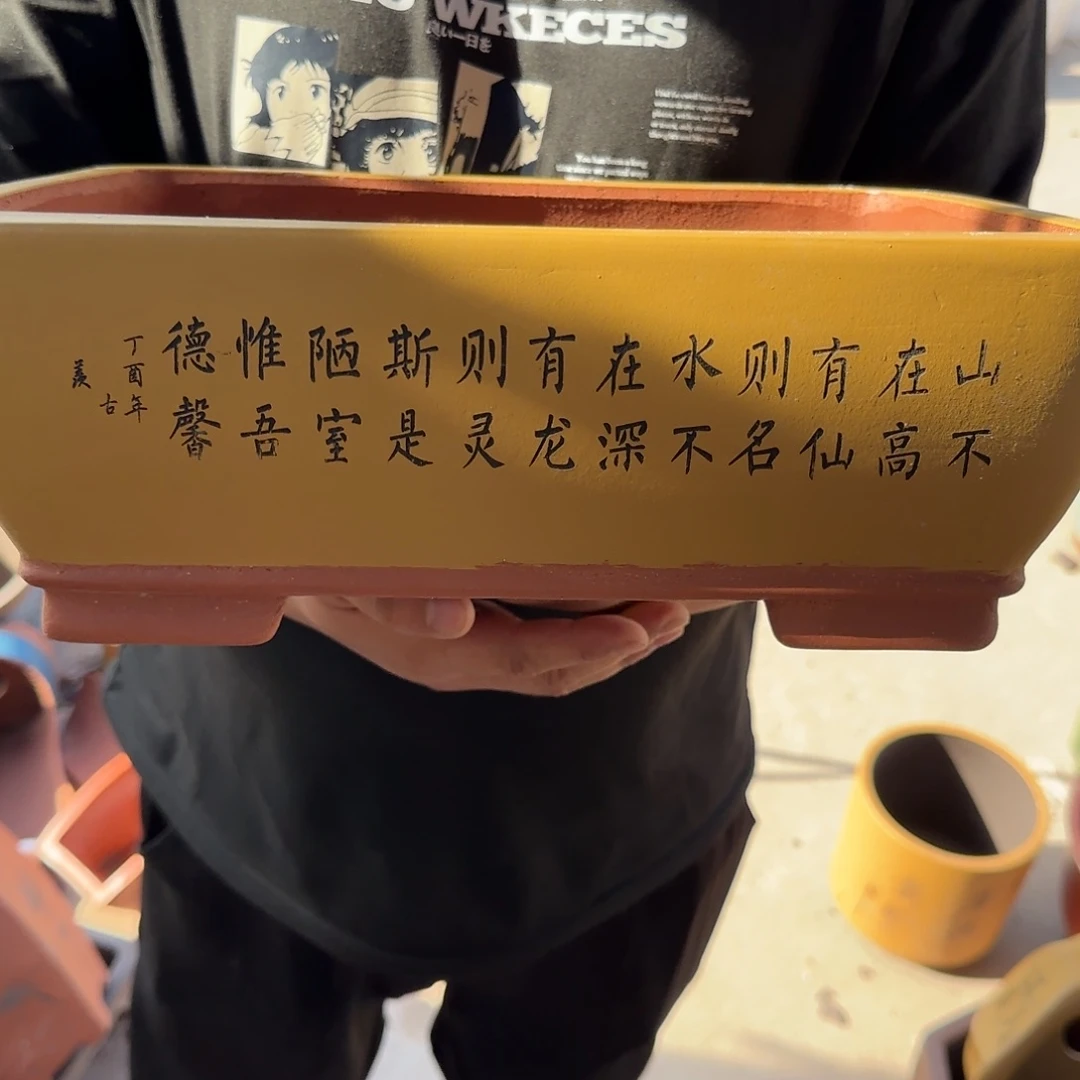 WKECES
い一日を
山不
在高
有仙
则名
水不
在深
有龙
则灵
斯是
陋室
惟吾
德馨
丁酉年
古
羡